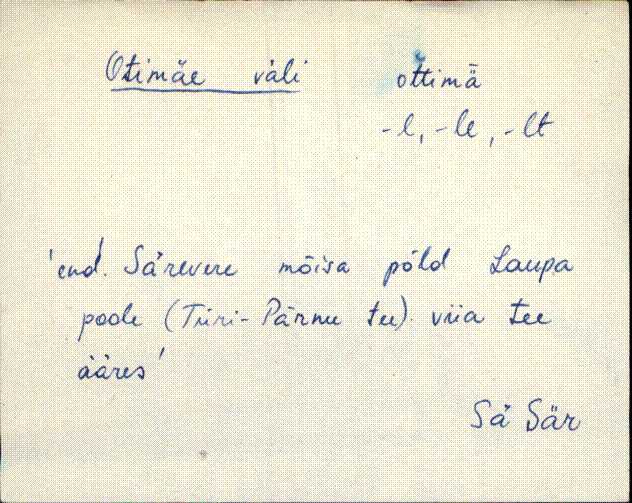 Otimäe väli oťtimä
-l, -le, -lt
'end. Särevere mõisa põld Laupa
poole (Türi-Pärnu tee) viia tee
ääres'
Sä Sär